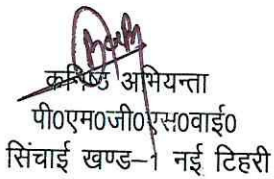 कनिष्ठ अभियन्ता
पी०एम०जी०एस०वाई०
सिंचाई खण्ड-1 नई टिहरी